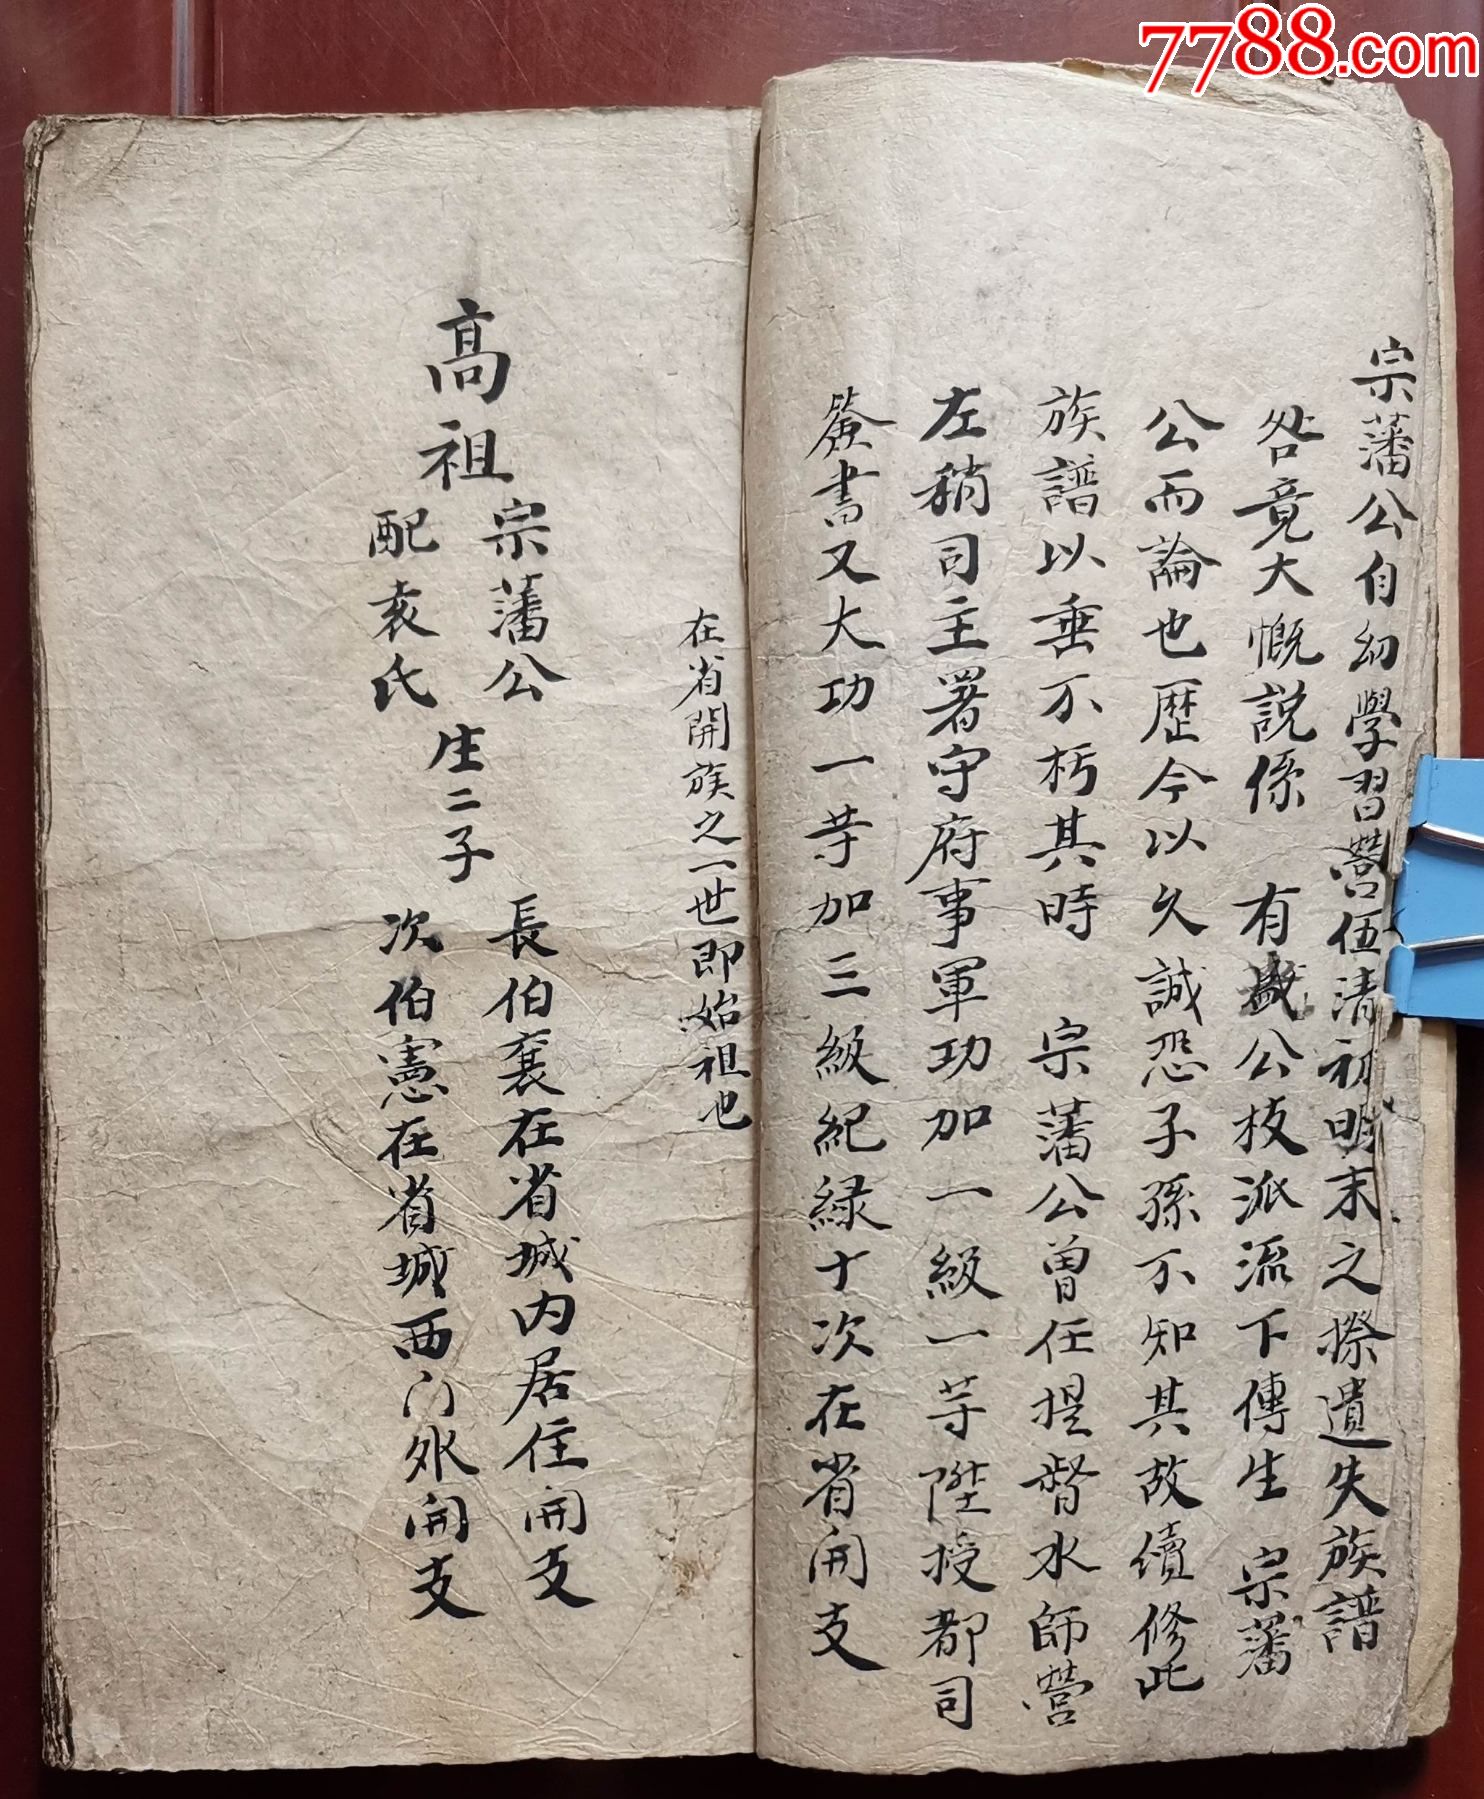 7788.com
宗藩公自幼學習營伍清初明末之際遺失族譜
咎竟大慨説係 有盛公枝派流下傳生 宗藩
公而論也歷今以久誠恐子孫不知其故續修此
族譜以垂不朽其時 宗藩公曾任提督水師營
左稍司主署守府事軍功加一級一等陞授都司
簽書又大功一等加三級紀録十次在省開支
在省開族之一世即始祖也
高祖
宗藩公
配袁氏
生二子
長伯襄在省城内居住開支
次伯憲在省城西门外開支